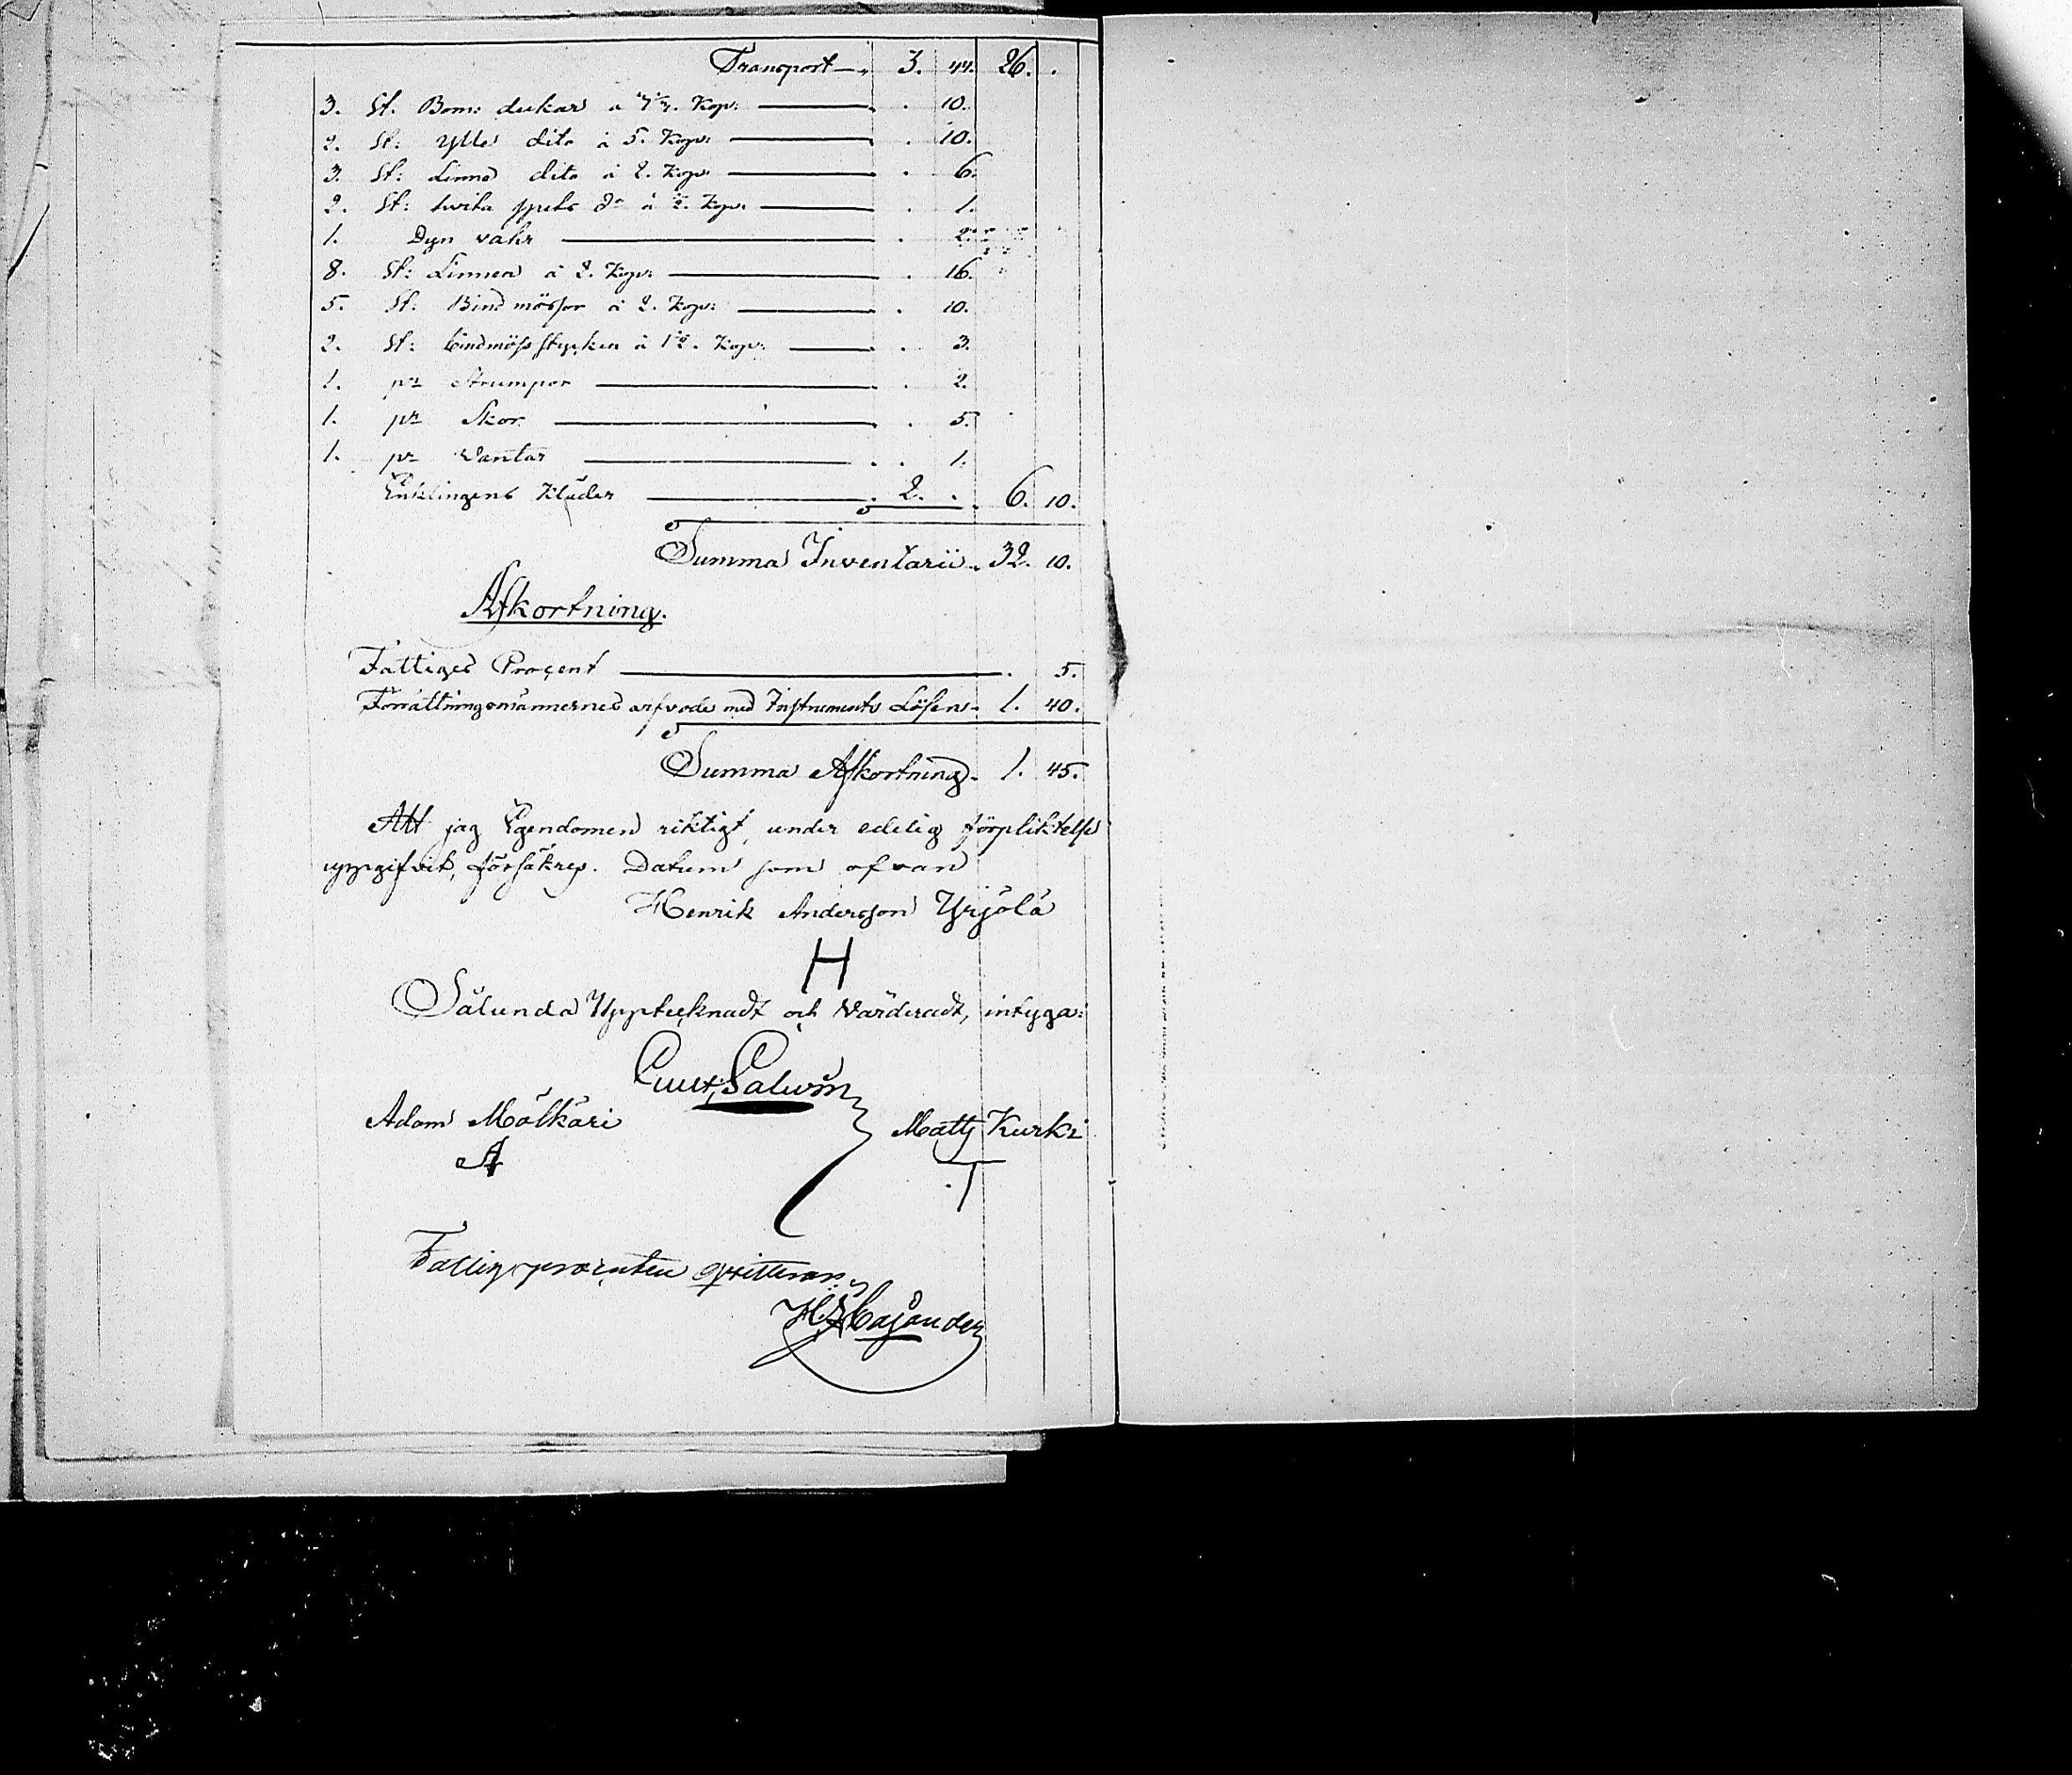 Transport 3. 44. 26. .
3. St. Bom: dukar a Kop: . 10.
2. St: Ylle dito à 5. Kop: . 10.
3. St: Linne dito à 2. Kop: . 6.
2. St: hvita à ½. Kop: . 1.
1. Dyn vahr . 2.
8. St: Linnen à 2. Kop: . 16.
5. St. Bindmössor à 2. Kop: . 10.
2. St: bindmöss stycken à 1½. Kop: . 3.
1. pr Strumpor . 2.
1. pr Skor . 5.
1. pr Vantar . 1.
Enklingens Kläder 2. . 6. 10.
Summa Inventarii 32. 10.
Afkortning.
Fattiges Procent . 5.
Förrättningsmännernes arfvode med Instruments Lösen 1. 40.
Summa Afkortning 1. 45.
Att jag Egendomen riktigt, under edelig förpliktelse
uppgifvit, försäkrep. Datum som ofvan
Henrik Andersson Yrjölä
H
Sålunda Upptecknadt och Värderadt, intyga:
Adam Mälkäri Matts Kurki
A
Fattigprocenten qvitteras
Cajander